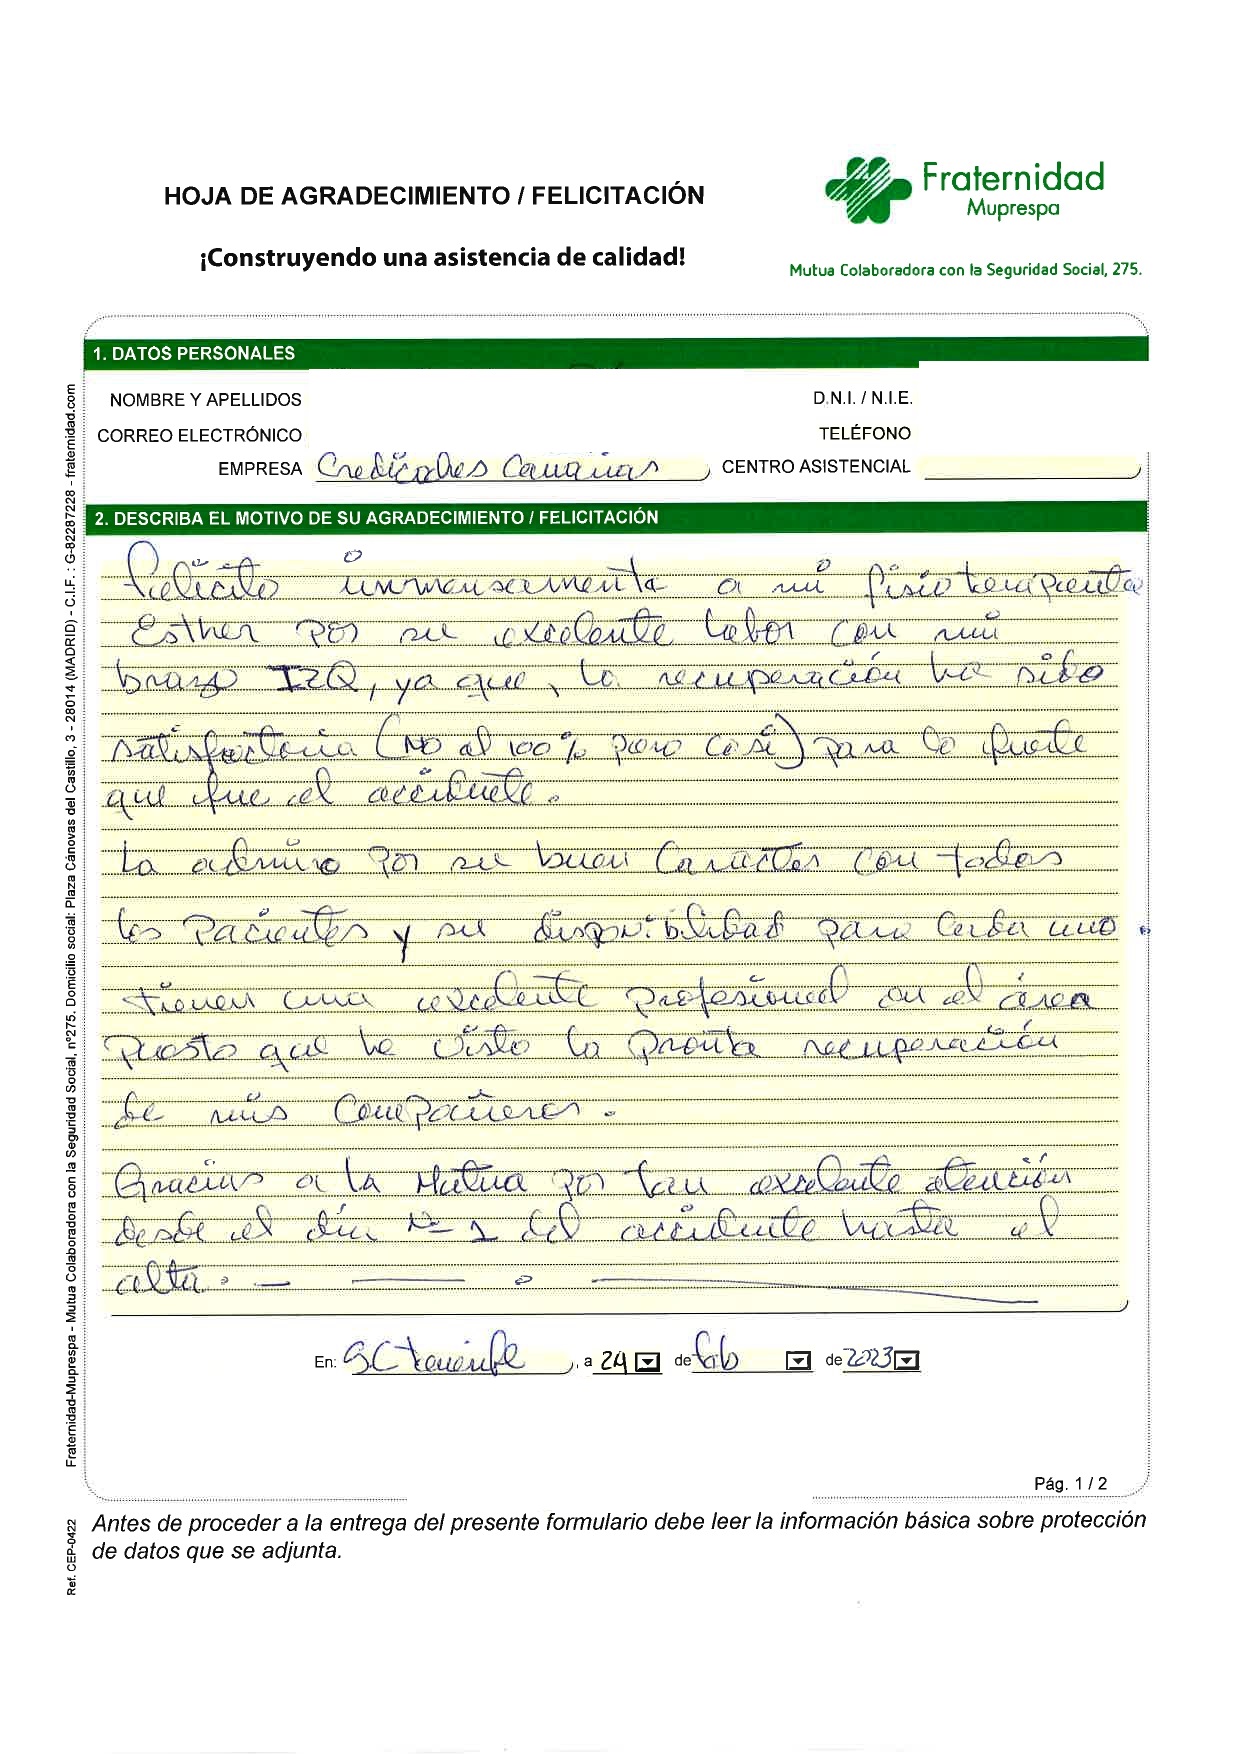 HOJA DE AGRADECIMIENTO / FELICITACIÓN
¡Construyendo una asistencia de calidad!
Fraternidad
Muprespa
Mutua Colaboradora con la Seguridad Social, 275.
1. DATOS PERSONALES
NOMBRE Y APELLIDOS
D.N.I. / N.I.E.
CORREO ELECTRÓNICO
TELÉFONO
EMPRESA Canarias
CENTRO ASISTENCIAL
2. DESCRIBA EL MOTIVO DE SU AGRADECIMIENTO / FELICITACIÓN
Felicito inmensamente a mi fisioterapeuta
Esther por su excelente labor con mi
brazo IZQ, ya que, la recuperación ha sido
satisfactoria (No al 100% pero casi) para lo fuerte
que fue el accidente.
La admiro por su buen caracter con todos
los Pacientes y su disponibilidad para cada uno
tienen una excelente profesional en el área
puesto que he visto la pronta recuperación
de mis compañeros.
Gracias a la Mutua por tan excelente atención
desde el día Nº 1 del accidente hasta el
alta.
En: SC tenerife, a 24 de feb de 2023
Pág. 1 / 2
Antes de proceder a la entrega del presente formulario debe leer la información básica sobre protección
de datos que se adjunta.
Fraternidad-Muprespa - Mutua Colaboradora con la Seguridad Social, nº275. Domicilio social: Plaza Cánovas del Castillo, 3 - 28014 (MADRID) - C.I.F. : G-82287228 - fraternidad.com
Ref. CEP-0422